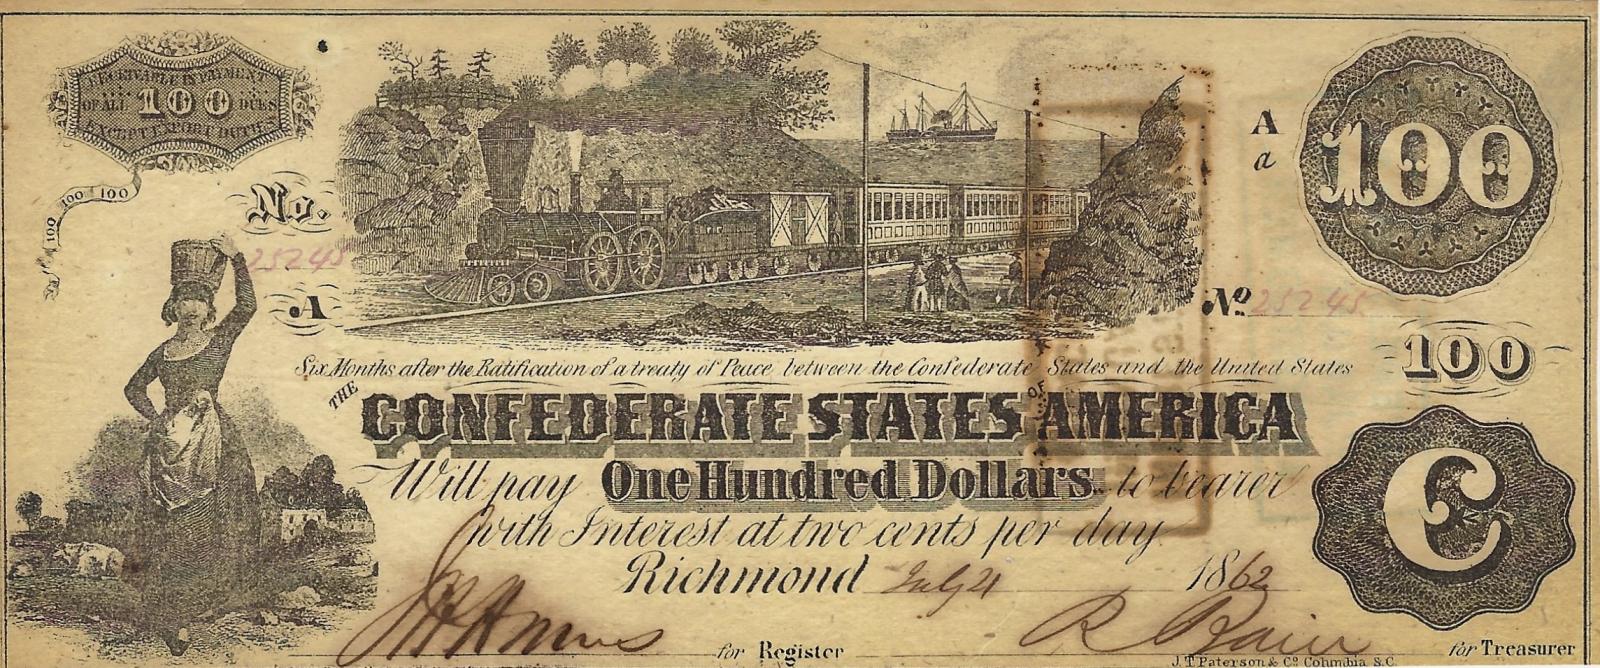 RECEIVABLE IN PAYMENT
OF ALL 100 DUES
EXCEPT EXPORT DUTIES
100 100 100
No.
25245
A
A
a
100
No. 25245
100
Six Months after the Ratification of a treaty of Peace between the Confederate States and the United States
THE
CONFEDERATE STATES OF AMERICA
Will pay One Hundred Dollars to bearer
with Interest at two cents per day.
Richmond July 21 1862
C
for Register
for Treasurer
J.T. Paterson & Co Columbia S.C.